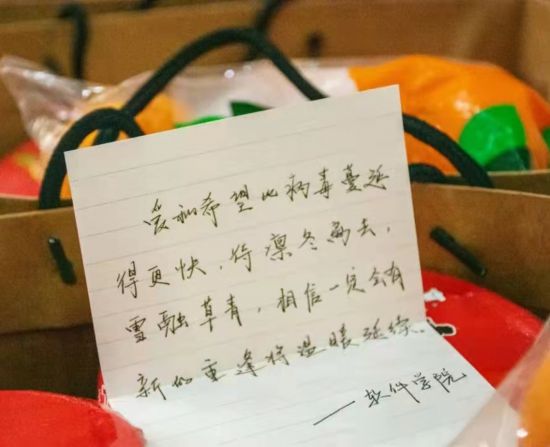 爱和希望比病毒蔓延
得更快，待凛冬离去，
雪融草青，相信一定会有
新的重逢将温暖延续。
——软件学院